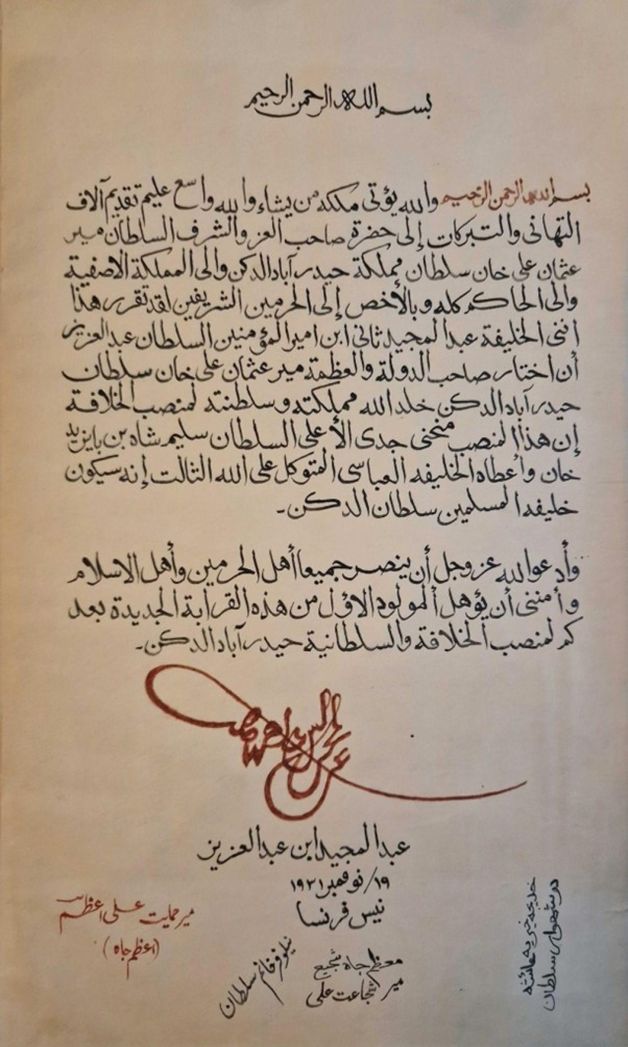 بسم الله الرحمن الرحيم
بسم الله الرحمن الرحيم والله يؤتى ملكه من يشاء والله واسع عليم تقديم آلاف
التهانى والتبركات إلى حضرة صاحب العز والشرف السلطان مير
عثمان على خان سلطان مملكة حيدرآباد الدكن والى المملكة الاصفية
والى الحاكم كله وبالأخص إلى الحرمين الشريفين لقد تقرر هذا
اننى الخليفة عبد المجيد ثانى ابن امير المؤمنين السلطان عبد العزيز
أن اختار صاحب الدولة والعظمة مير عثمان على خان سلطان
حيدرآباد الدكن خلد الله مملكته وسلطنته لمنصب الخلافة
إن هذا المنصب منحنى جدى الأعلى السلطان سليم شاه بن بايزيد
خان وأعطاه الخليفه العباسى المتوكل على الله الثالت إنه سيكون
خليفه المسلمين سلطان الدكن -
وأدعو الله عز وجل أن ينصر جميعا أهل الحرمين وأهل الاسلام
وأمننى أن يؤهل المولود الاؤل من هذه القرابة الجديدة بعد
كم لمنصب الخلافة والسلطانية حيدرآباد الدكن -
عبد المجيد ابن عبد العزيز
١٩/ نوفمبر ١٩٣١
نيس فرنسا
مير حمايت على اعظم
(اعظم جاه)
معظم جاه شجيع
مير شجاعت على
نيلوفر خانم سلطان
خديجه خيريه عائشه
در شهوار سلطان